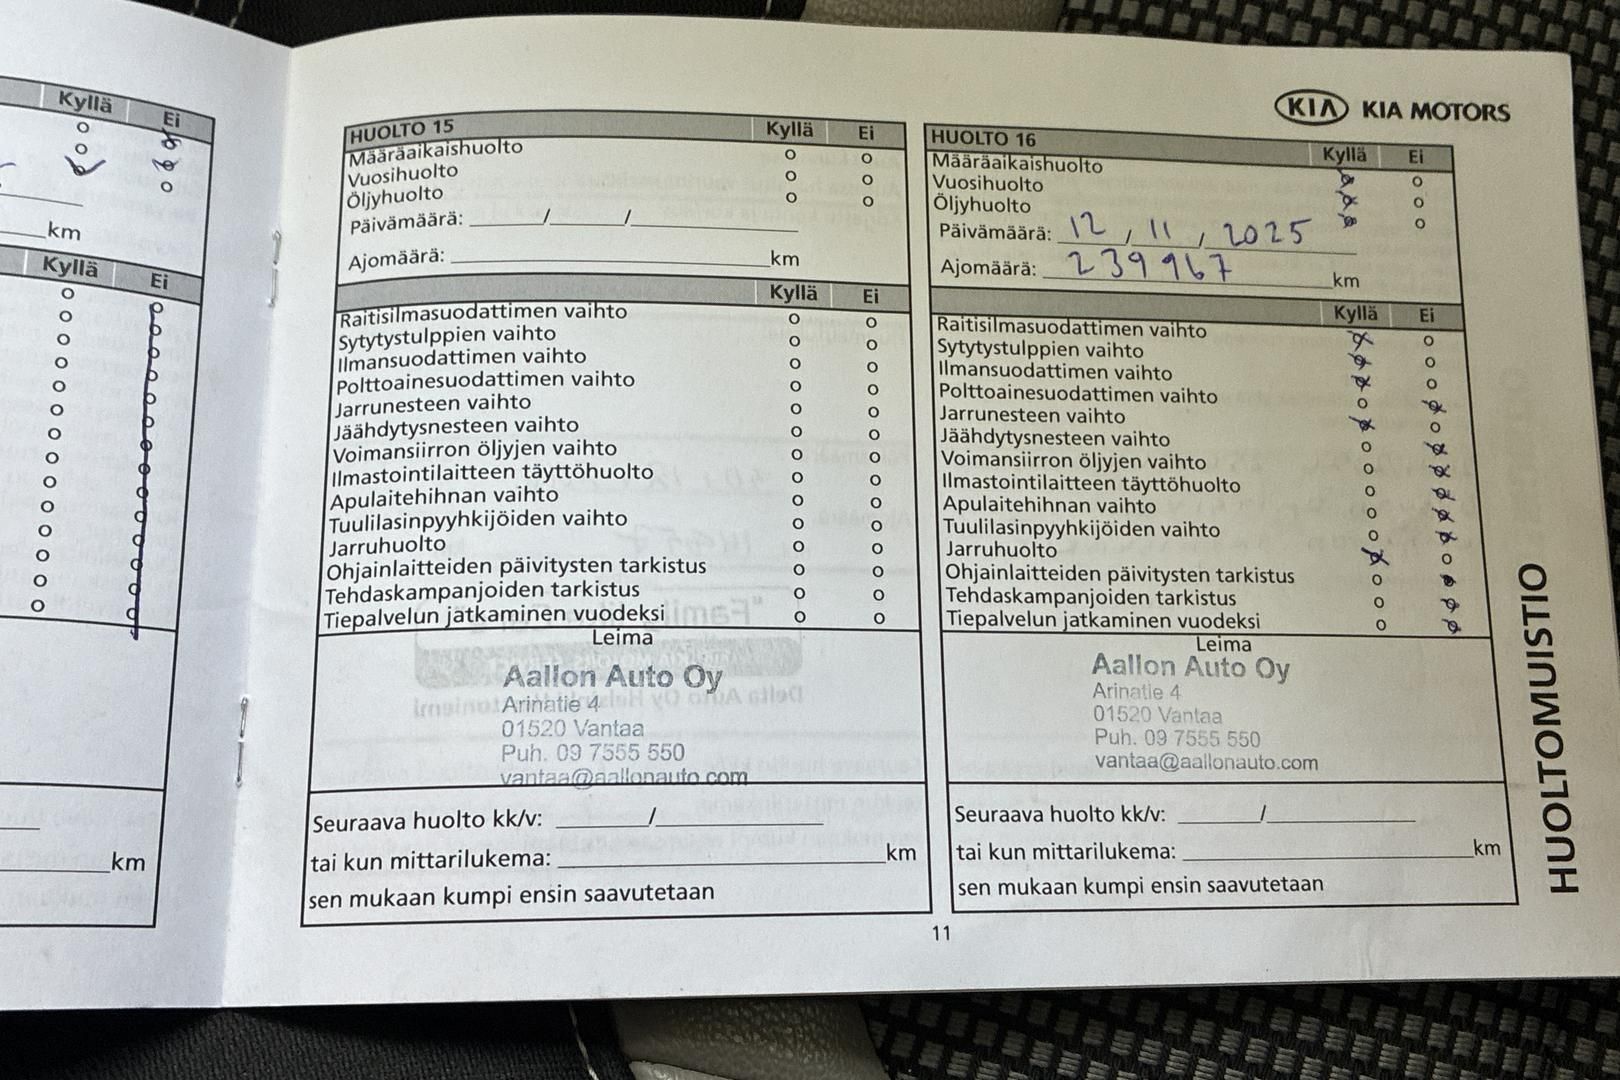 Kyllä Ei
km
Kyllä Ei
km
KIA KIA MOTORS
HUOLTO 15 Kyllä Ei
Määräaikaishuolto o o
Vuosihuolto o o
Öljyhuolto o o
Päivämäärä: ______/______/______
Ajomäärä: ______ km
Kyllä Ei
Raitisilmasuodattimen vaihto o o
Sytytystulppien vaihto o o
Ilmansuodattimen vaihto o o
Polttoainesuodattimen vaihto o o
Jarrunesteen vaihto o o
Jäähdytysnesteen vaihto o o
Voimansiirron öljyjen vaihto o o
Ilmastointilaitteen täyttöhuolto o o
Apulaitehihnan vaihto o o
Tuulilasinpyyhkijöiden vaihto o o
Jarruhuolto o o
Ohjainlaitteiden päivitysten tarkistus o o
Tehdaskampanjoiden tarkistus o o
Tiepalvelun jatkaminen vuodeksi o o
Leima
Aallon Auto Oy
Arinatie 4
01520 Vantaa
Puh. 09 7555 550
vantaa@aallonauto.com
Seuraava huolto kk/v: ______/______
tai kun mittarilukema: ______ km
sen mukaan kumpi ensin saavutetaan
HUOLTO 16 Kyllä Ei
Määräaikaishuolto
Vuosihuolto
Öljyhuolto
Päivämäärä: 12 / 11 / 2025
Ajomäärä: 239967 km
Kyllä Ei
Raitisilmasuodattimen vaihto
Sytytystulppien vaihto
Ilmansuodattimen vaihto
Polttoainesuodattimen vaihto
Jarrunesteen vaihto
Jäähdytysnesteen vaihto
Voimansiirron öljyjen vaihto
Ilmastointilaitteen täyttöhuolto
Apulaitehihnan vaihto
Tuulilasinpyyhkijöiden vaihto
Jarruhuolto
Ohjainlaitteiden päivitysten tarkistus
Tehdaskampanjoiden tarkistus
Tiepalvelun jatkaminen vuodeksi
Leima
Aallon Auto Oy
Arinatie 4
01520 Vantaa
Puh. 09 7555 550
vantaa@aallonauto.com
Seuraava huolto kk/v: ______/______
tai kun mittarilukema: ______ km
sen mukaan kumpi ensin saavutetaan
HUOLTOMUISTIO
11